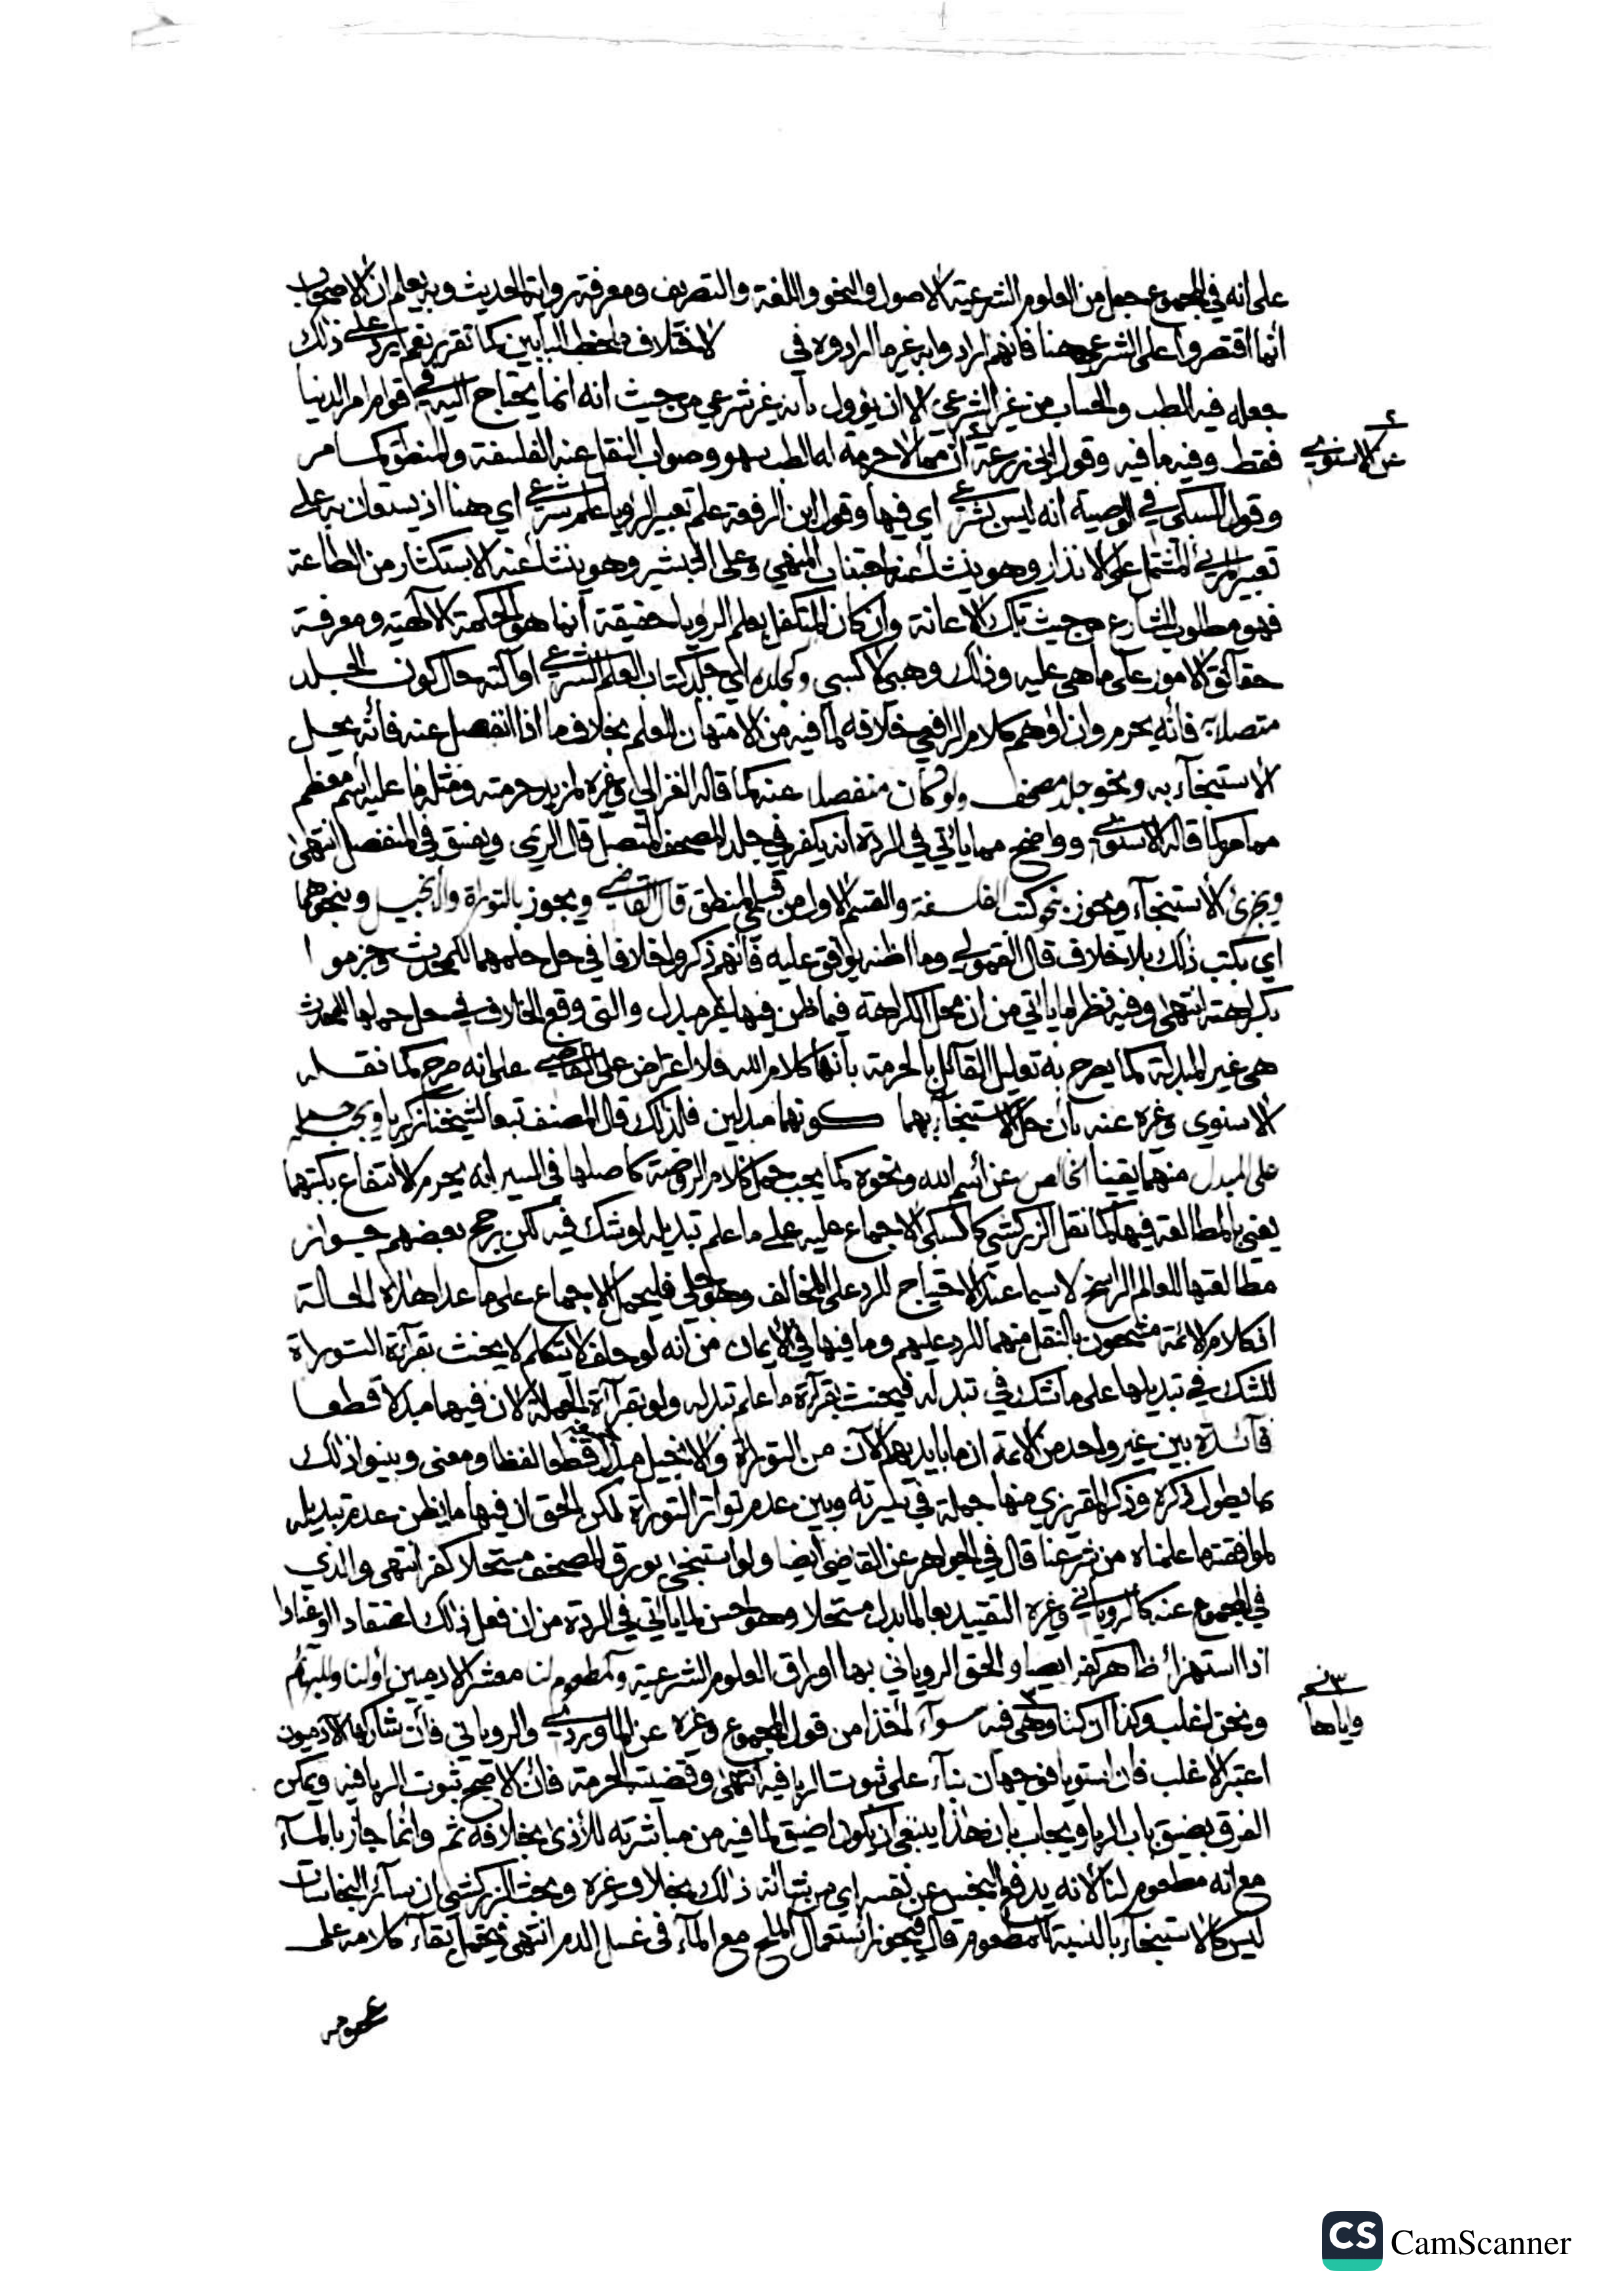 على انه في المجموع جعل من العلوم الشرعية الاصول والنحو واللغة والتصريف ومعرفة رواته الحديث وبه يعلم ان الاصحاب
انما اقتصروا على الشرعي هنا فانهم ارادوا به غير ما ارادوه في الاختلاف ملحظ البابين كما تقرر نعم يرد على ذلك
جعله فيه الطب والحساب من غير الشرعي الا ان يؤول بانه غير شرعي من حيث انه انما يحتاج اليه في قوام امر الدنيا
فقط وفيه ما فيه وقول الجزرعة ان مما لا حرمة له الطب سهو وصواب النقل عنه الفلسفة والمنطق كما مر
عن الاسنوي
وقول السبكي في الوصية انه ليس بشرعي اي فيها وقول ابن الرفعة علم تعبير الرؤيا علم شرعي اي هنا اذ يستعان به على
تعبير المرئي المشتمل على الانذار وهو ينشأ عنه اجتناب المنهي وعلى التبشير وهو ينشأ عنه الاستكثار من الطاعة
فهو مطلوب للشارع من حيث تلك الاعانة وان كان المتكفل بعلم الرؤيا حقيقة انما هو الحكمة الالهية ومعرفة
حقائق الامور على ما هي عليه وذلك وهبي لا كسبي وكجلده اي جلد كتاب العلم الشرعي او آلته حال كون الجلد
متصلا به فانه يحرم وان اوهم كلام الرافعي خلافه لما فيه من الامتهان للعلم بخلاف ما اذا انفصل عنه فانه يحل
الاستنجاء به ونحو جلد مصحف ولو كان منفصلا عنه كما قاله الغزالي وغيره لمزيد حرمته ومثله ما عليه اسم معظم
مما مر كما قاله الاسنوي وواضح مما يأتي في الردة انه يكفر في جلد المصحف المتصل قال الريمي ويفسق في المنفصل انتهى
ويجزئ الاستنجاء ويجوز بنحو كتب الفلسفة والقسم الاول من قسمي المنطق قال القاضي ويجوز بالتوراة والانجيل ونحوهما
اي بكتب ذلك بلا خلاف قال القمولي وما اظنه يوافق عليه فانهم ذكروا خلافا في حل حملهما للمحدث وجزموا
بكراهته انتهى وفيه نظر لما يأتي من ان محل الكراهة فيما ظن فيها غير مبدل والتي وقع الخلاف في حل حملها للمحدث
هي غير المبدلة كما يصرح به تعليل القائل بالحرمة بانها كلام الله فلا اعتراض على القاضي على انه صرح كما نقله
الاسنوي وغيره عنه بان محل الاستنجاء بهما كونهما مبدلين فلذلك قال المصنف تبعا لشيخنا زكريا ويجب حمله
على المبدل منهما يقينا الخالص عن اسم الله ونحوه كما يجب حمل كلام الروضة كاصلها في السير انه يحرم الانتفاع بكتبهما
يعني بالمطالعة فيها كما نقل الزركشي كالسبكي الاجماع عليه على ما علم تبديله او شك فيه لكن رجح بعضهم جواز
مطالعتها للعالم الراسخ لا سيما عند الاحتياج للرد على المخالف وهو جلي فليحمل الاجماع على ما عدا هذه الحالة
اذ كلام الائمة مشحون بالنقل منهما للرد عليهم وما فيها في الايمان من انه لو حلف لا يتكلم لا يحنث بقرآءة التوراة
للشك في تبديلها على ما شك في تبدله فيحنث بقرآءة ما علم تبدله ولو بقرآءة الجملة لان فيهما مبدلا قطعا
فآئدة بين غير واحد من الائمة ان ما بايديهم الآن من التوراة والانجيل مبدل قطعا لفظا ومعنى وبينوا ذلك
بما يطول ذكره وذكر المقريزي منها جملة في سيرته وبين عدم تواتر التوراة لكن الحق ان فيها ما يظن عدم تبديله
لموافقتها علمناه من شرعنا قال في الجواهر عن القاضي ايضا ولو استنجى بورق المصحف مستحلا كفر انتهى والذي
في المجموع عنه كالروياني وغيره التقييد بعالما بدل مستحلا وهو احسن لما يأتي في الردة من ان فعل ذلك اعتقادا او عنادا
اذا استهزاء ظاهر كفر ايضا والحق الروياني بها اوراق العلوم الشرعية ومطعوم لنا معشر الادميين او لنا وللبهائم
ونحن اغلب وكذا ان كنا وهي فيه سواء اخذا من قول المجموع وغيره عن الماوردي والروياني فان شاركها الآدميون
واياها
اعتبر الاغلب فان استويا فوجهان بناء على ثبوت الربا فيه انتهى وقضيته الحرمة فان الاصح ثبوت الربا فيه ويمكن
الفرق بضيق باب الربا ويجاب بان هذا ينبغي ان يكون اضيق لما فيه من مباشرته للاذى بخلافه ثم وانما جاز بالماء
مع انه مطعوم لنا لانه يدفع النجس عن نفسه اي من شانه ذلك بخلاف غيره وبحث الزركشي ان سائر النجاسات
ليس كالاستنجاء بالنسبة للمطعوم قال فيجوز استعمال الملح مع الماء في غسل الدم انتهى فيحتمل ابقاء كلامه على
عمومه
CS CamScanner